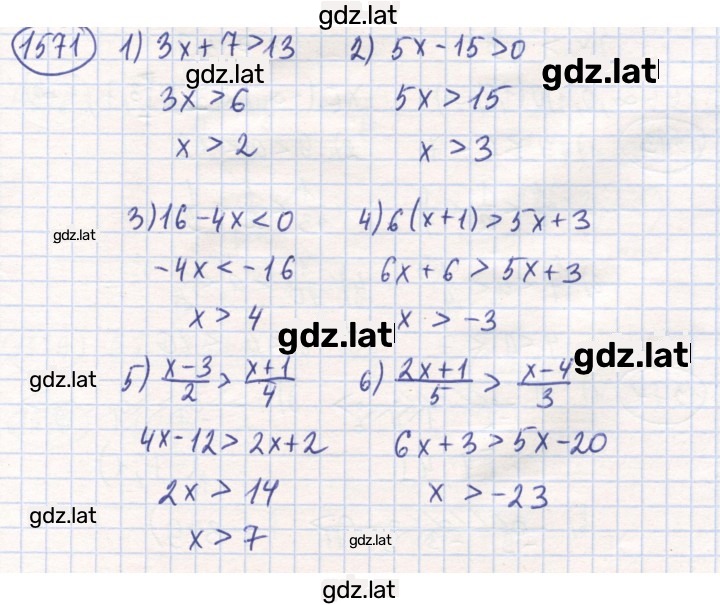 gdz.lat
1571 1) 3x+7>13 2) 5x-15>0
gdz.lat gdz.lat
3x>6 5x>15
x>2 x>3
3) 16-4x<0 4) 6(x+1)>5x+3
gdz.lat
-4x<-16 6x+6>5x+3
x>4 x>-3
gdz.lat
gdz.lat
5) (x-3)/2 > (x+1)/4 6) (2x+1)/5 > (x-4)/3
gdz.lat
4x-12>2x+2 6x+3>5x-20
2x>14 x>-23
gdz.lat
x>7 gdz.lat
gdz.lat